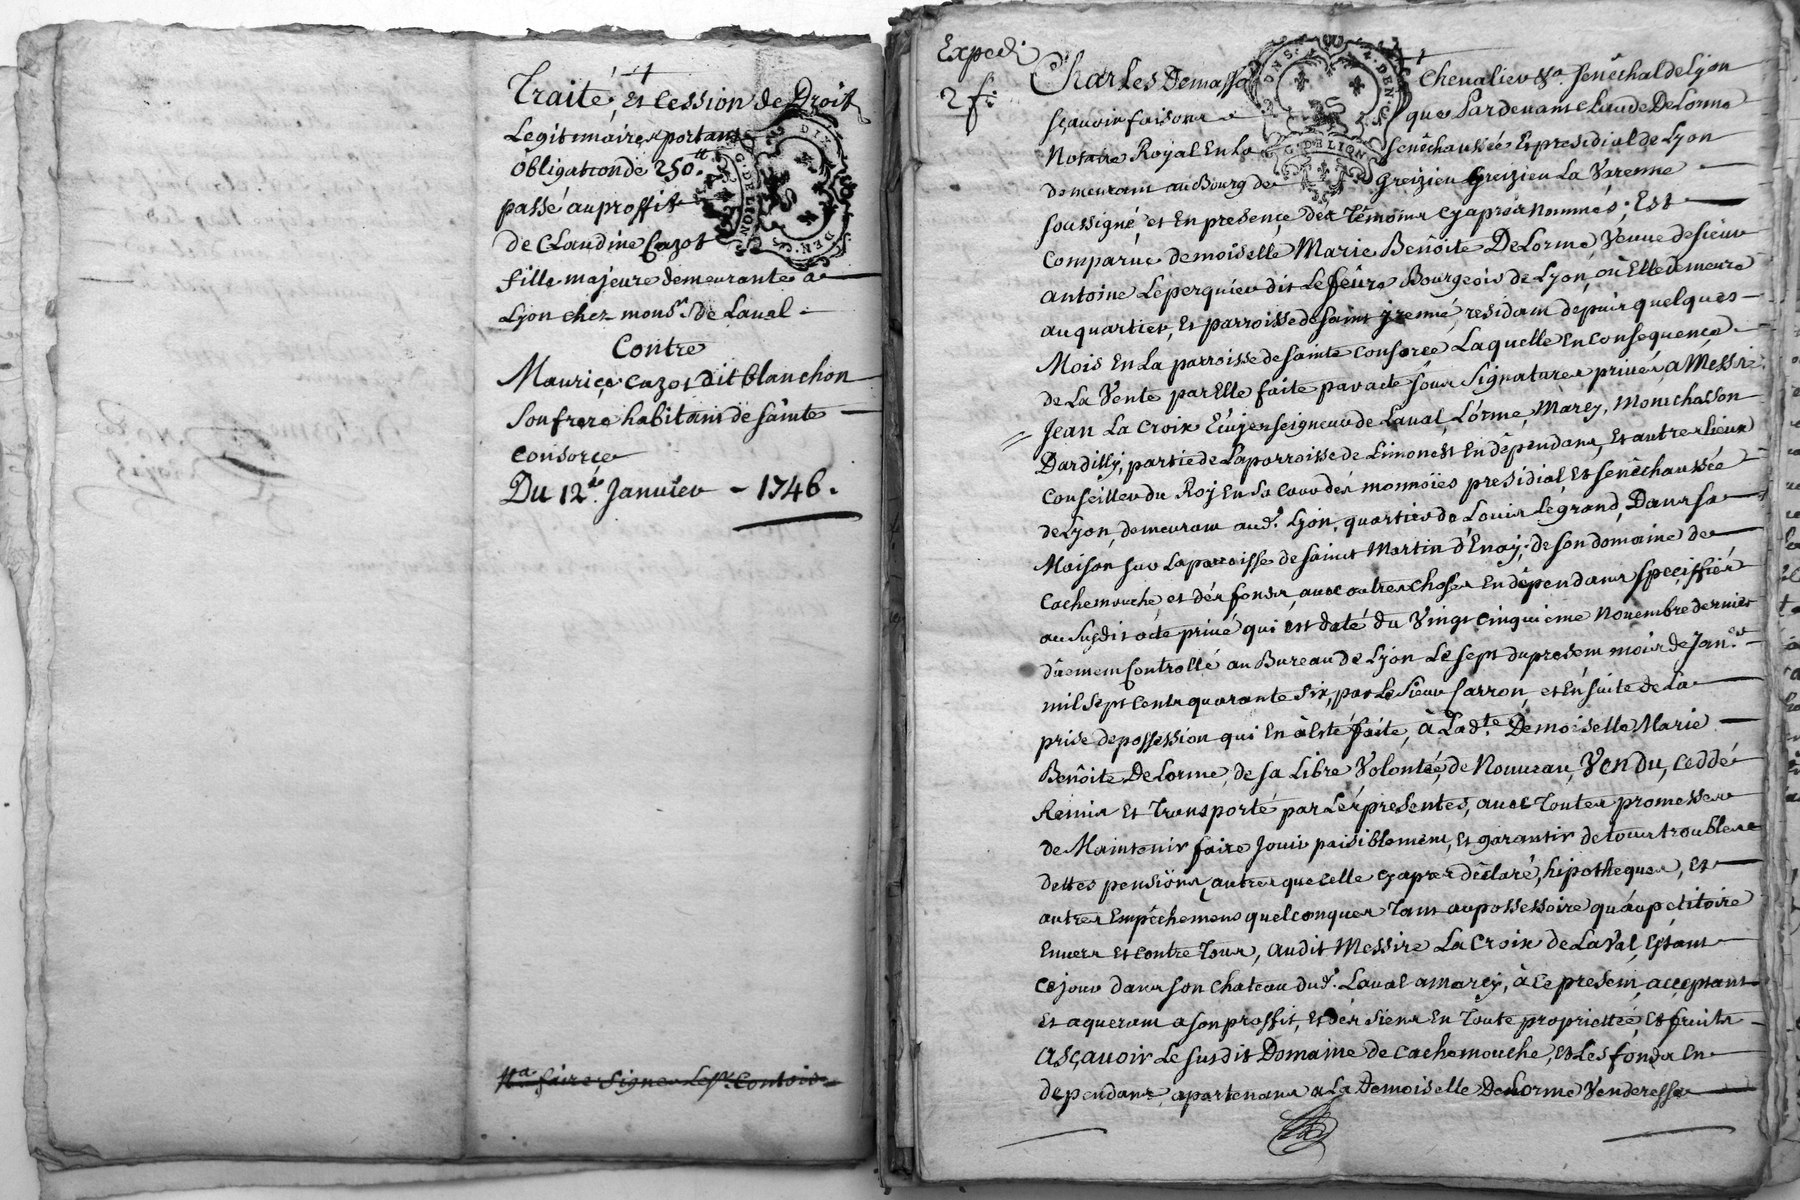 Traité, et Cession de Droit
Legitimaire, portant
obligation de 250.tt
passé au proffit
de Claudine Cazot
fille majeure demeurante a
Lyon chez monsr. de Laval.
Contre
Maurice Cazot dit blanchon
son frere habitant de sainte
consorce
Du 12e. Januier - 1746.
Na faire signer Le sr. Contois
Expedi.
2 f:
Charles Demasso Cheualier &a Senéchal de Lyon
sçauoir faisons que Pardeuant Claude DeLorme
Notaire Royal En La Senêchaussée Et presidial de Lyon
demeurant au Bourg de Greizieu Greizieu La Varenne
soussigné, et En presençe des Témoins cyaprés Nommés; Est
Comparüe demoiselle Marie Benôite DeLorme Veuue de sieur
antoine Leperquier dit Lefeure Bourgeois de Lyon, où Elle demeure
au quartier, Et parroisse de saint jremié, residant depuis quelques
Mois En La parroisse de sainte Consorce Laquelle En Consequençe
de La Vente par Elle faite par acte sous signatures priués, a Messire
Jean La Croix Ecuyer seigneur de Laual, Lorme, Marcy, Montchasson
Dardilly, partie de La parroisse de Limonest En dépendant, Et autres lieux
Conseiller du Roy En sa Cour dés monnoïes presidial, Et senêchaussée
de Lyon, demeurant aud. Lyon, quartier de Louis Légrand, Dans sa
Maison sur La parroisse de saint Martin d'Enay; de son domaine de
Cachemouche, et dés fonds, auec autres choses En dépendans speçiffiés
au susdit acte priué qui est daté du Vingt cinquieme Nouembre dernier
düement Controllé au Bureau de Lyon Le sept du present mois de Jan.er
mil sept cents quarante six, par Le sieur Carron, et En suite de La
prise de possession qui En à Esté faite, à Lad.te Demoiselle Marie
Benôite DeLorme, de sa Libre Volontée, de Nouueau, Vendu, ceddé
Remis Et Transporté par Lés presentes, auec Toutes promesses
de Maintenir faire Jouir paisiblement, Et garantir de tous troubles
dettes pensïons, autres que celle cyapres déclaré, hipotheques, Et
autres Empêchemens quelconques Tant au possessoire qu'au petitoire
Enuers Et contre Tous, audit Messire La Croix de LaVal, Estant
ce jour dans son chateau dud. Laual a marcy, à ce present, acceptant
Et aquerant a son proffit, Et dés siens En Toute proprietté, Et fruits
asçauoir Le susdit Domaine de Cachemouche, Et Les fonds En
dependans, apartenans a La Demoiselle DeLorme Venderesse
G. DE LION
DEN.CS
G. DE LION